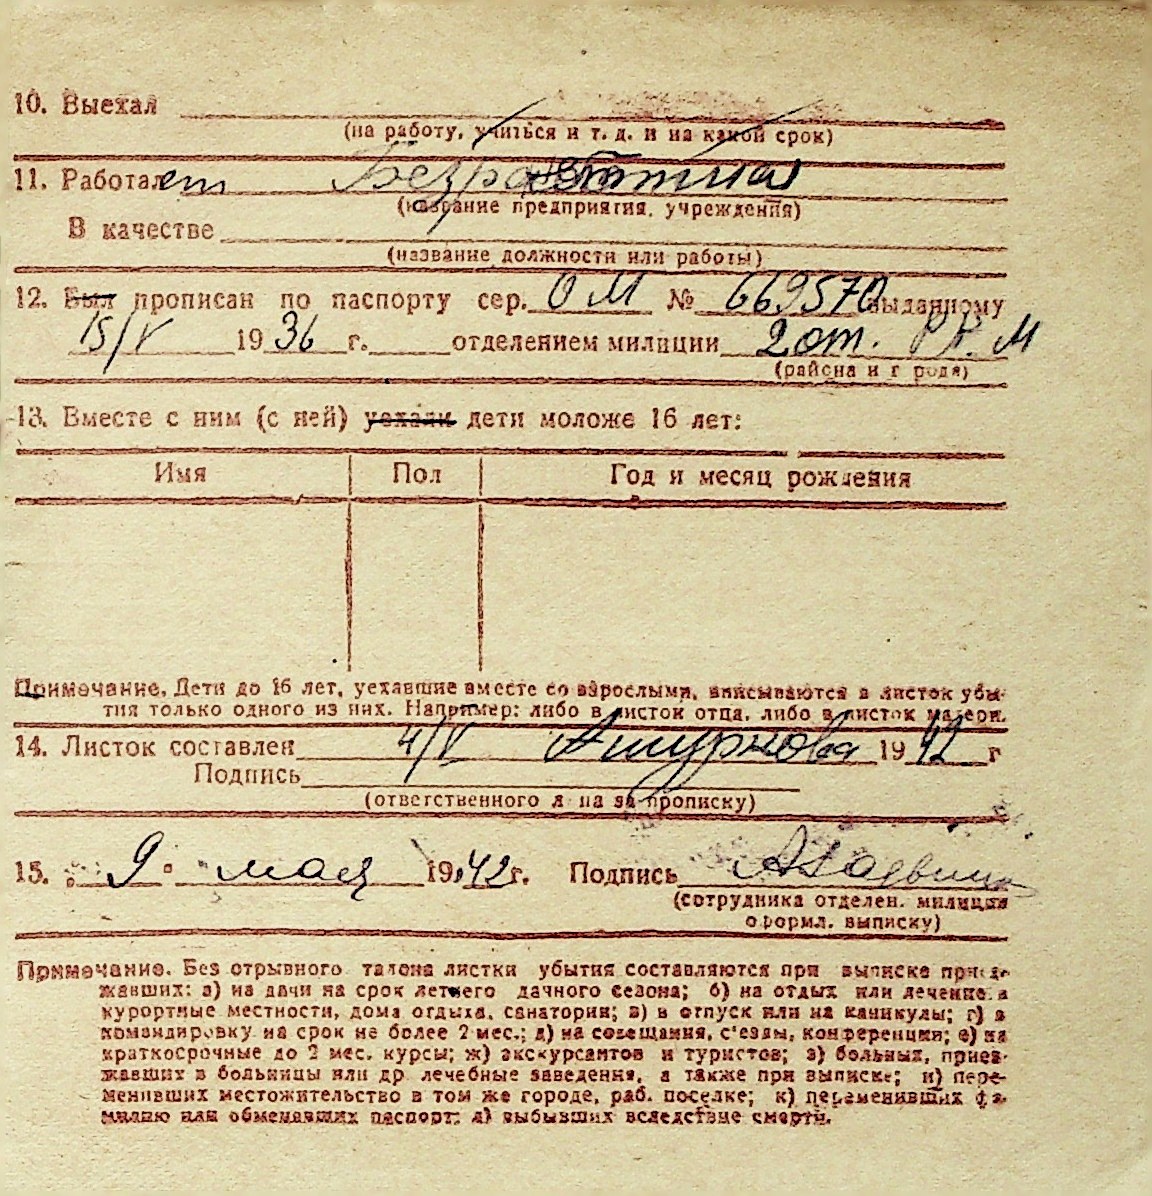 10. Выехал
(на работу, учиться и т. д. и на какой срок)
11. Работает Безработная
(название предприятия, учреждения)
В качестве
(название должности или работы)
12. Был прописан по паспорту сер. ОМ № 669570 выданному
15/V 1936 г. отделением милиции 2 от. Р К. М
(района и города)
13. Вместе с ним (с ней) уехали дети моложе 16 лет:
Имя Пол Год и месяц рождения
Примечание. Дети до 16 лет, уехавшие вместе со взрослыми, вписываются в листок убы-
тия только одного из них. Например: либо в листок отца, либо в листок матери.
14. Листок составлен 4/V 1942 г
Подпись
(ответственного лица за прописку)
15. 9 мая 1942 г. Подпись
(сотрудника отделен. милиции
оформл. выписку)
Примечание. Без отрывного талона листки убытия составляются при выписке приез-
жавших: а) на дачи на срок летнего дачного сезона; б) на отдых или лечение в
курортные местности, дома отдыха, санатории; в) в отпуск или на каникулы; г) в
командировку на срок не более 2 мес.; д) на совещания, с'езды, конференции; е) на
краткосрочные до 2 мес. курсы; ж) экскурсантов и туристов; з) больных, приез-
жавших в больницы или др. лечебные заведения, а также при выписке; и) пере-
менивших местожительство в том же городе, раб. поселке; к) переменивших фа-
милию или обменявших паспорт; л) выбывших вследствие смерти.